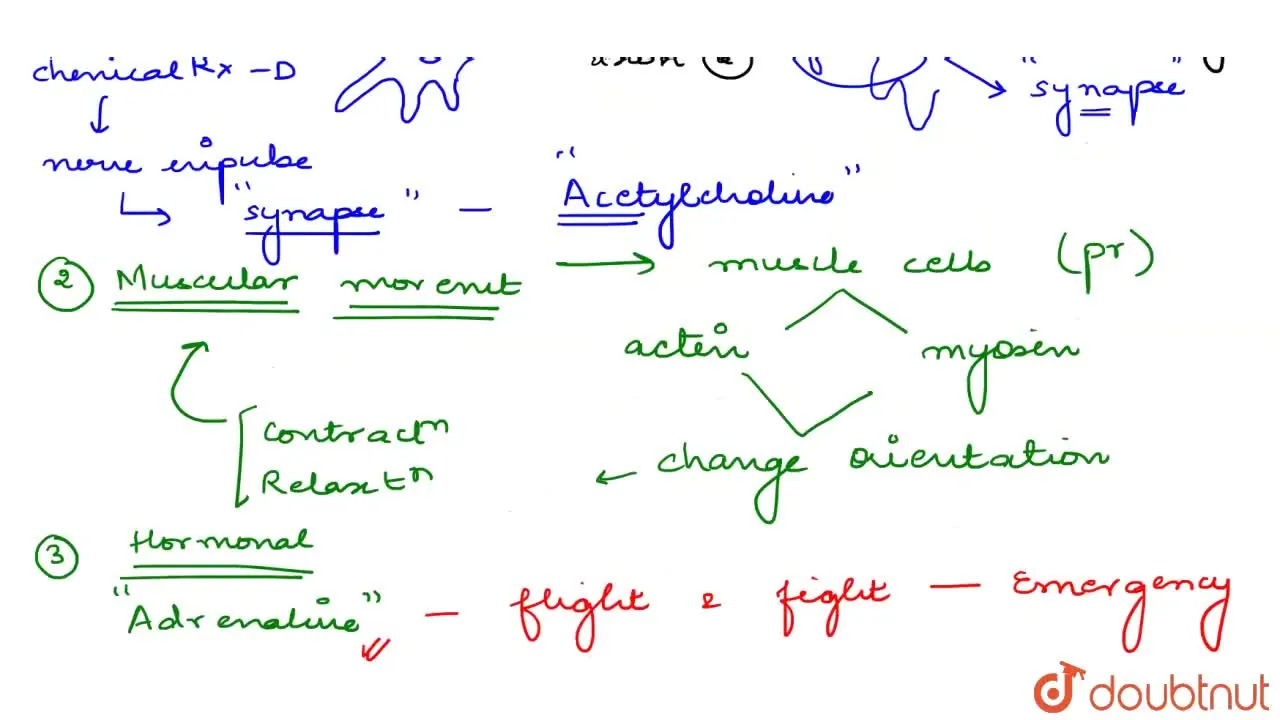 chemical Rx - D
"synapse"
nerve impulse
"synapse" - "Acetylcholine"
② Muscular movement → muscle cells (pr)
actin myosin
Contractⁿ
Relaxtⁿ ← change orientation
③ Hormonal
"Adrenaline" - flight & fight - Emergency
doubtnut